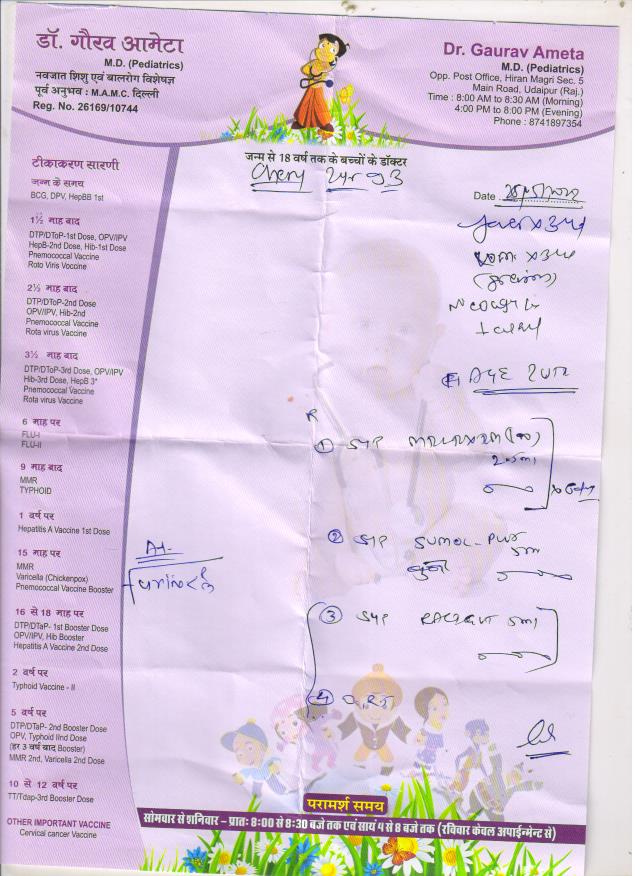 डॉ. गौरव आमेटा
M.D. (Pediatrics)
नवजात शिशु एवं बालरोग विशेषज्ञ
पूर्व अनुभव : M.A.M.C. दिल्ली
Reg. No. 26169/10744
Dr. Gaurav Ameta
M.D. (Pediatrics)
Opp. Post Office, Hiran Magri Sec. 5
Main Road, Udaipur (Raj.)
Time : 8:00 AM to 8:30 AM (Morning)
4:00 PM to 8:00 PM (Evening)
Phone : 8741897354
जन्म से 18 वर्ष तक के बच्चों के डॉक्टर
टीकाकरण सारणी
जन्म के समय
BCG, DPV, HepBB 1st
1½ माह बाद
DTP/DToP-1st Dose, OPV/IPV
HepB-2nd Dose, Hib-1st Dose
Pnemococcal Vaccine
Roto Viris Voccine
2½ माह बाद
DTP/DToP-2nd Dose
OPV/IPV, Hib-2nd
Pnemococcal Vaccine
Rota virus Vaccine
3½ माह बाद
DTP/DToP-3rd Dose, OPV/IPV
Hib-3rd Dose, HepB 3*
Pnemococcal Vaccine
Rota virus Vaccine
6 माह पर
FLU-I
FLU-II
9 माह बाद
MMR
TYPHOID
1 वर्ष पर
Hepatitis A Vaccine 1st Dose
15 माह पर
MMR
Varicella (Chickenpox)
Pnemococcal Vaccine Booster
16 से 18 माह पर
DTP/DTaP- 1st Booster Dose
OPV/IPV, Hib Booster
Hepatitis A Vaccine 2nd Dose
2 वर्ष पर
Typhoid Vaccine - II
5 वर्ष पर
DTP/DTaP- 2nd Booster Dose
OPV, Typhoid IInd Dose
(हर 3 वर्ष बाद Booster)
MMR 2nd, Varicella 2nd Dose
10 से 12 वर्ष पर
TT/Tdap-3rd Booster Dose
OTHER IMPORTANT VACCINE
Cervical cancer Vaccine
Date
① SYP
② SYP SUMOL-PLUS
③ SYP 5ml
④ O.R.S
परामर्श समय
सोमवार से शनिवार – प्रातः 8:00 से 8:30 बजे तक एवं सायं 4 से 8 बजे तक (रविवार केवल अपाईन्मेन्ट से)